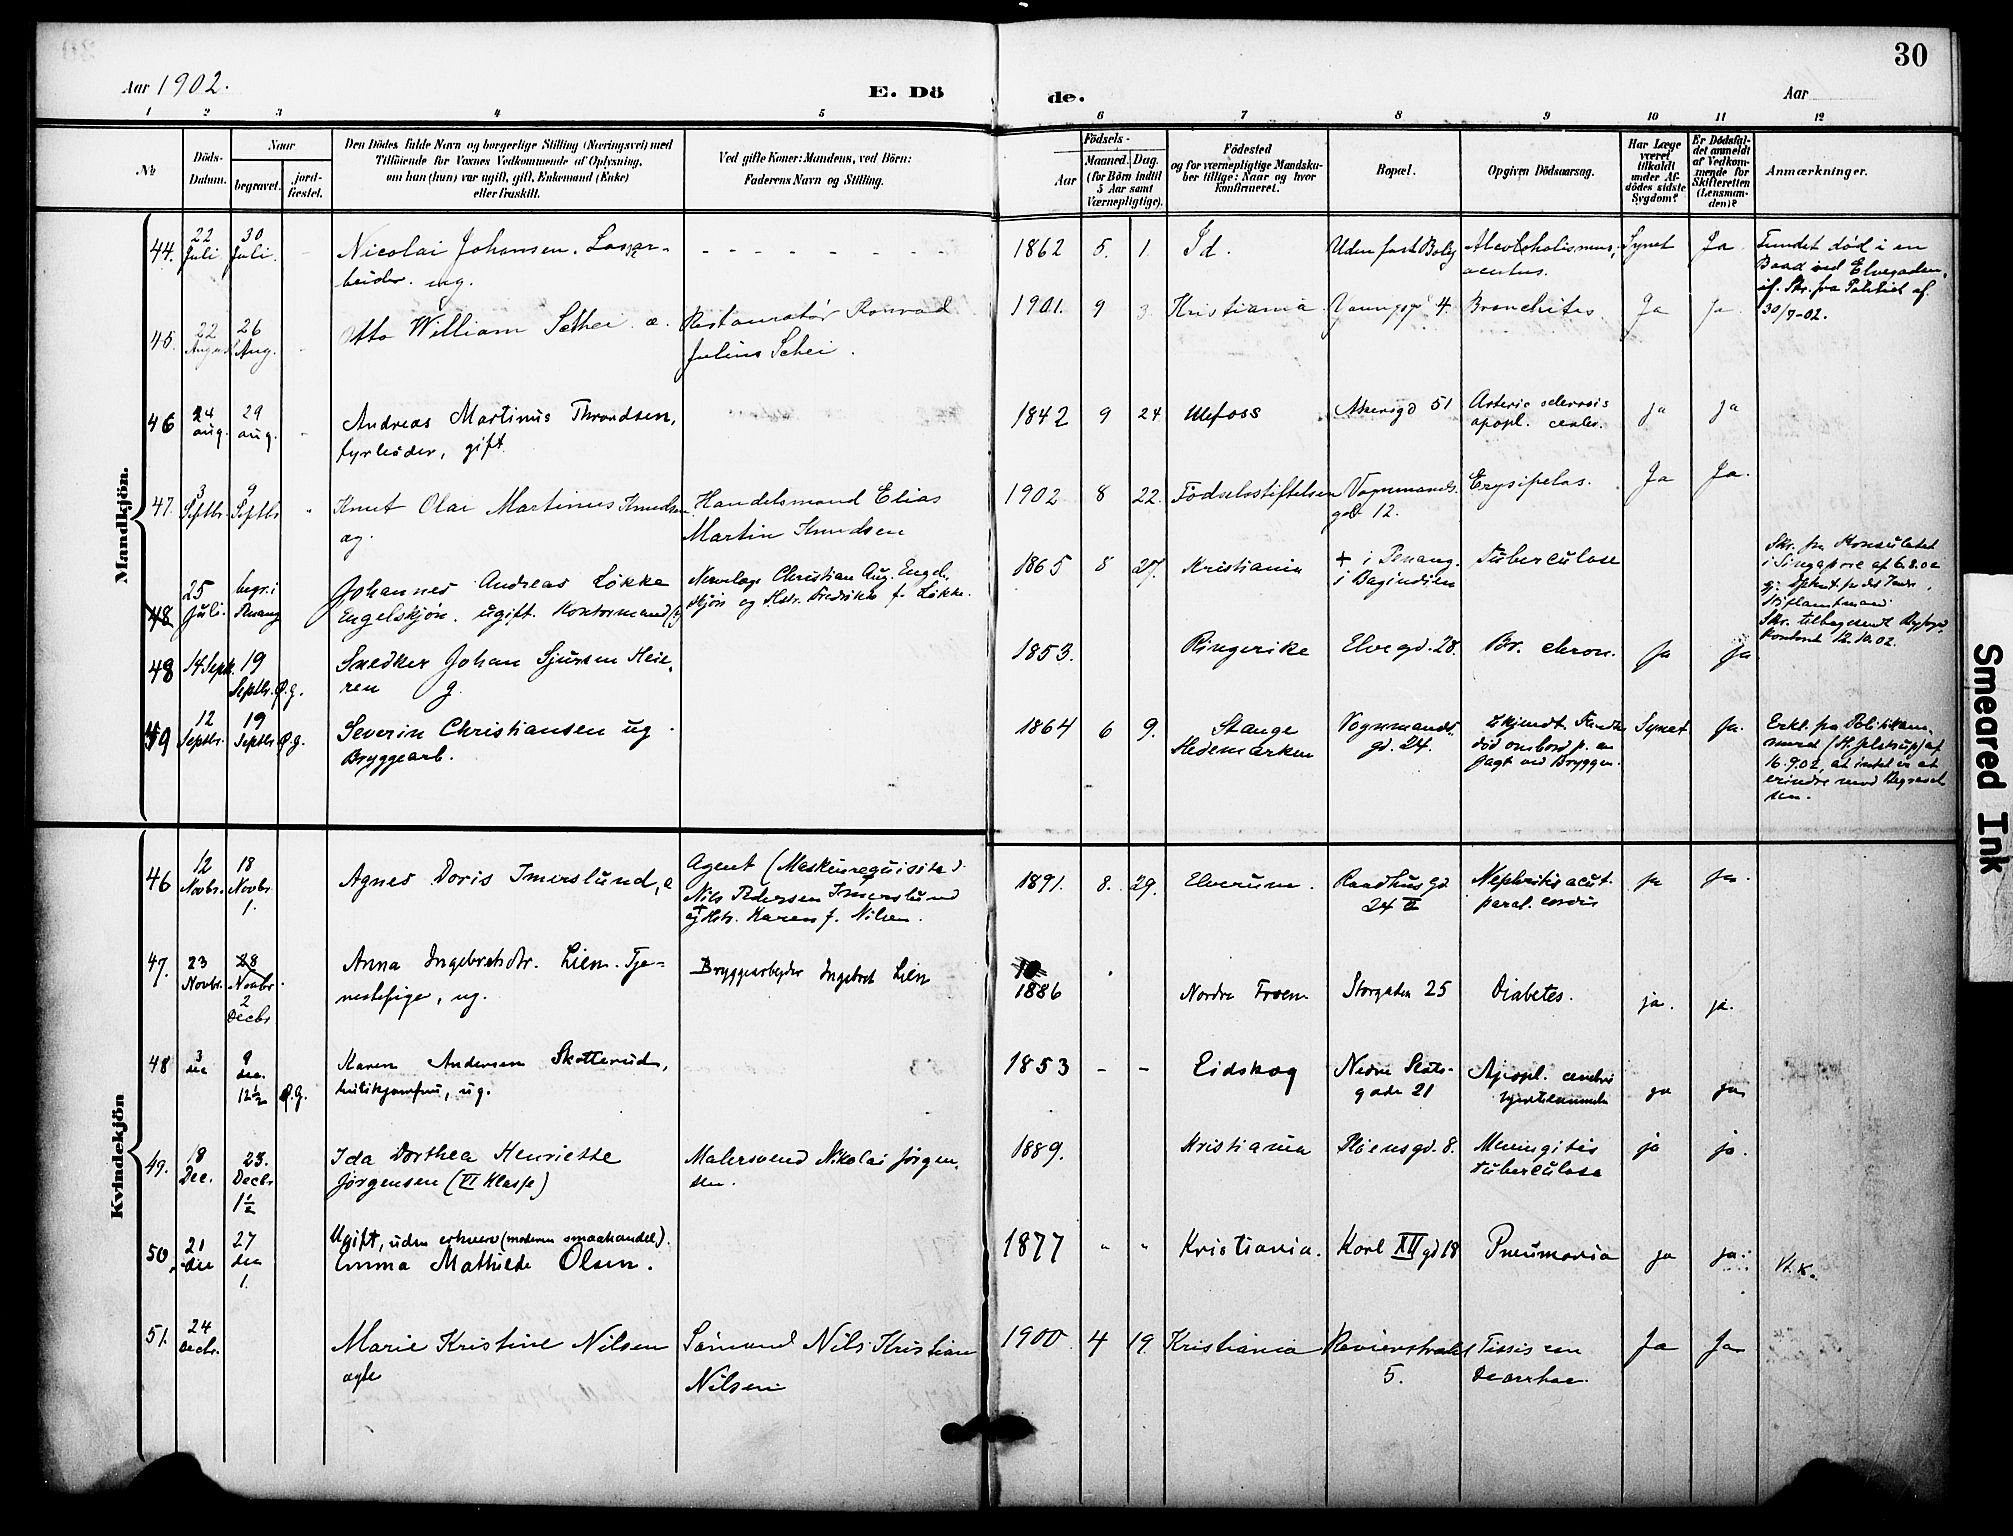 30
Aar 1902.
E. Döde.
Aar
1 2 3 4 5 6 7 8 9 10 11 12
No
Döds-Datum.
Naar
begravet.
jordfæstet.
Den Dödes fulde Navn og borgerlige Stilling (Næringsvei) med
Tilföiende for Voxnes Vedkommende af Oplysning,
om han (hun) var ugift, gift, Enkemand (Enke)
eller fraskilt.
Ved gifte Koner: Mandens, ved Börn:
Faderens Navn og Stilling.
Födsels-
Aar
Maaned. Dag.
(for Börn indtil
5 Aar samt
Værnepligtige).
Födested
og for værnepligtige Mandskaber tillige: Naar og hvor
konfirmeret.
Bopæl.
Opgiven Dödsaarsag.
Har Læge
været
tilkaldt
under Afdödes sidste
Sygdom?
Er Dödsfaldet anmeldt
af Vedkommende for
Skifteretten
(Lensmanden)?
Anmærkninger.
Mandkjön.
44. 22 Juli 30 Juli.
Nicolai Johansen. Løsarbeider. ug.
1862 5. 1. Id. Uden fast Bolig Alcoholismus acutus. Synet Ja
Fundet død i en
Baad ved Elvegaden,
30/7-02.
45. 22 August 26 Aug.
Otto William Schei. æ.
Restauratør Konrad
Julius Schei.
1901. 9 3. Kristiania 4. Bronchites. Ja Ja
46 24 aug. 29 aug.
Andreas Martinus Throndsen,
fyrbøder, gift.
1842 9 24 Ulefoss Akersgd 51 Arterio sclerosis
apopl. cerebr. ja ja
47. 3 Septbr. 9 Septbr.
Knut Olai Martinus Knudsen
æg.
Handelsmand Elias
Martin Knudsen
1902 8 22. Fødselsstiftelsen Vognmands-
gd. 12. Erysipelas. Ja Ja.
48 25 Juli. begr. i Penang
Johannes Andreas Løkke
Engelskjøn. ugift. Kontormand
Christian Aug. Engelskjøn og Hstr. Fredrikke f. Løkke.
1865 8 27. Kristiania + i Penang
i Bagindien Tuberculose
Skr. fra Konsulatet
i Singapore af 6.8.02
Skr. tilbagesendt
12.10.02.
48 14 Sept. 19 Septbr. Ø.g.
Snedker Johan Sjursen Heieren g.
1853. Ringerike Elvegd. 28. Br. chron. Ja Ja
49 12 Septbr. 19 Septbr. Ø.g.
Severin Christiansen ug.
Bryggearb.
1864 6 9. Stange
Hedemarken Vognmands-
gd. 24. Ukjendt. Funden
død ombord p. en
Jagt ved Bryggen. Synet Ja.
Erkl. fra
16.9.02, at intet er at
erindre mod Begravelsen.
Kvindekjön
46 12 Novbr. 18 Novbr. 1.
Agnes Doris Imerslund, æ
Agent (Maskinrequisita)
Nils Pedersen Imerslund
og Hstr. Karen f. Nilsen.
1891. 8. 29. Elverum. Raadhusgd
24 II Nephritis acut.
paral. cordis ja ja.
47. 23 Novbr. 28 Novbr. 2 Decbr
Anna Ingebretsdtr. Lien. Tjenestepige, ug.
Bryggearbejder Ingebret Lien
1886 Nordre Froen Storgaden 25 Diabetes. ja. ja.
48 3 dec 9 dec. 12½ Ø.g.
Karen Andersen Skotterud,
butikjomfru, ug.
1853 - - Eidskog Nedre Slots-
gade 21 Apopl. cerebri
hjertelammelse ja ja
49. 18 Dec. 23. Decbr 1½
Ida Dorthea Henriette
Jørgensen (VI Klasse)
Malersvend Nikolai Jørgensen.
1889. Kristiania Pløensgd. 8. Meningitis
tuberculosa ja ja.
50. 21 dec 27 dec 1.
Ugift, uden erhverv (moderen smaahandel).
Emma Mathilde Olsen.
1877 " " Kristiania. Karl XII gd 18 Pneumonia ja ja.
51. 24 Decbr.
Marie Kristine Nilsen
ægte
Sømand Nils Kristian
Nilsen
1900 4 19. Kristiania Revierstrædet
5. Ja Ja
Smeared Ink